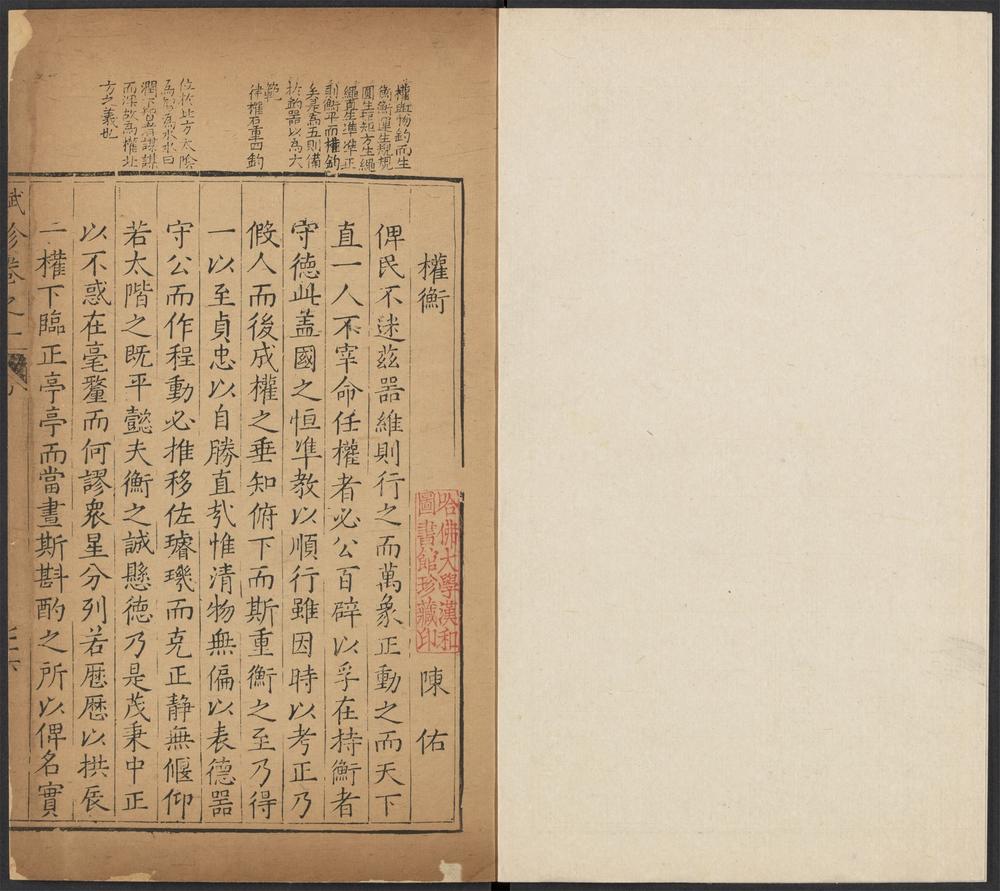 權與物鈞而生
衡衡運生規規
圓生矩矩方生繩
繩直生準準正
則衡平而權鈞
矣是為五則備
於鈞器以為大
範
律權石重四鈞
位於北方太陰
為智為水水曰
潤下智者謀謀
而深故為權北
方之義也
權衡
陳佑
俾民不迷茲器維則行之而萬象正動之而天下
直一人不宰命任權者必公百辟以孚在持衡者
守德此蓋國之恒準教以順行雖因時以考正乃
假人而後成權之垂知俯下而斯重衡之至乃得
一以至貞忠以自勝直㢤惟清物無偏以表德器
守公而作程動必推移佐璿璣而克正靜無偃仰
若太階之既平懿夫衡之誠懸德乃是茂秉中正
以不惑在毫釐而何謬衆星分列若歷歷以拱辰
二權下臨正亭亭而當晝斯斟酌之所以俾名實
賦珍卷之一
哈佛大學漢和
圖書館珍藏印